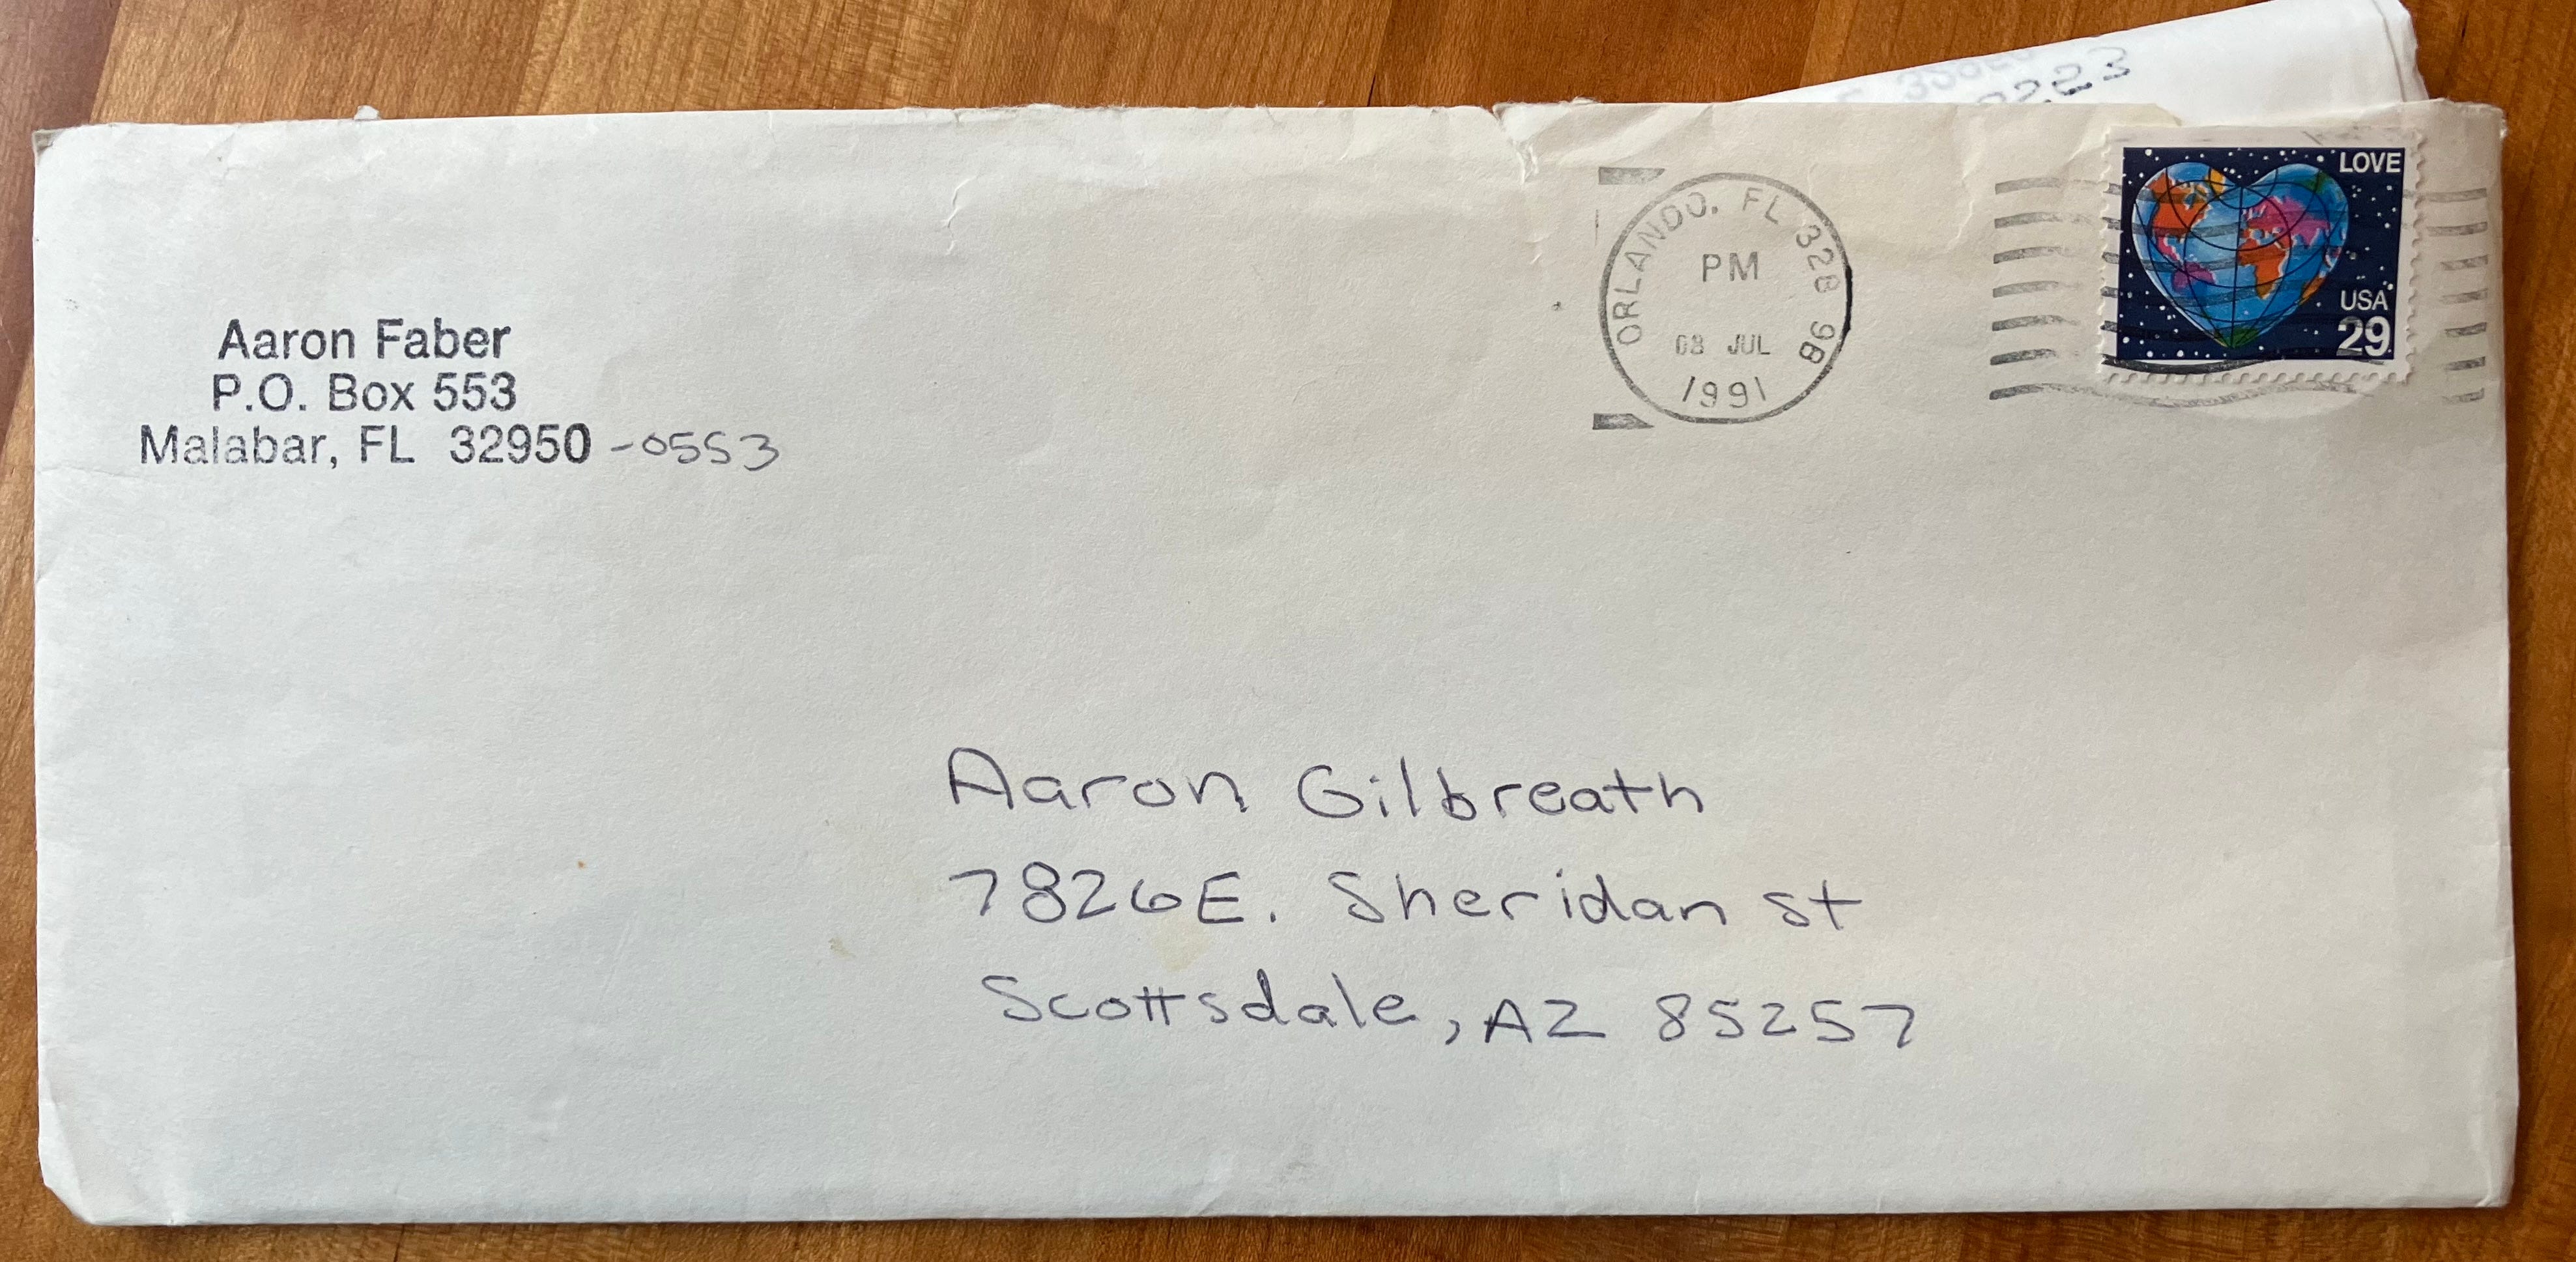 Aaron Faber
P.O. Box 553
Malabar, FL 32950 -0553
ORLANDO, FL 328 9B
PM
08 JUL
1991
LOVE
USA
29
Aaron Gilbreath
7826 E. Sheridan st
Scottsdale, AZ 85257